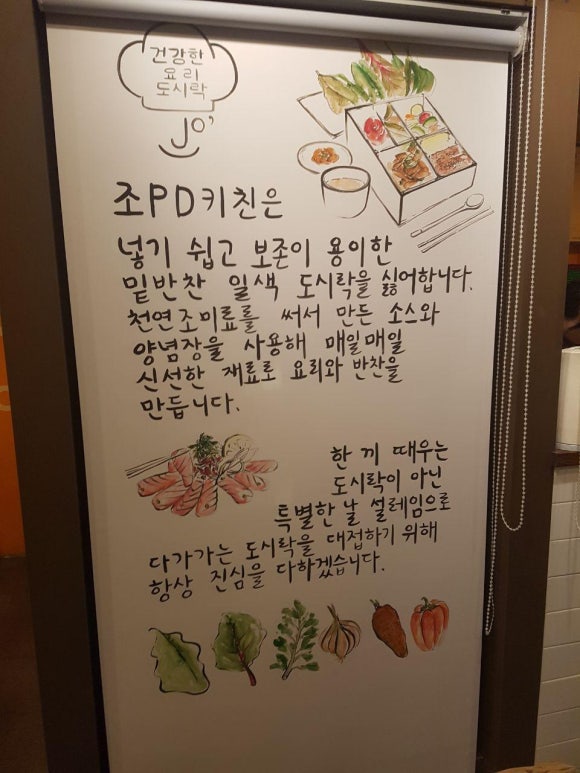 건강한
요리
도시락
Jo'
조PD키친은
넣기 쉽고 보존이 용이한
밑반찬 일색 도시락을 싫어합니다.
천연조미료를 써서 만든 소스와
양념장을 사용해 매일매일
신선한 재료로 요리와 반찬을
만듭니다.
한 끼 때우는
도시락이 아닌
특별한 날 설레임으로
다가가는 도시락을 대접하기 위해
항상 진심을 다하겠습니다.